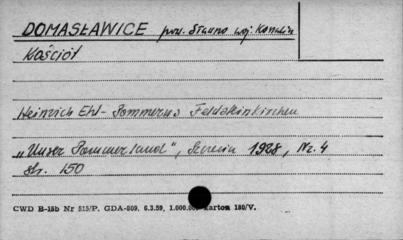 DOMASŁAWICE pow. Sławno woj. Koszalin
Kościół
Heinrich Ehl - Pommerns Feldsteinkirchen
„Unser Pommerland", Szczecin 1928, Nr. 4
str. 150
CWD B-15b Nr 515/P. GDA-809. 6.3.59, 1.000.00 karton 180/V.